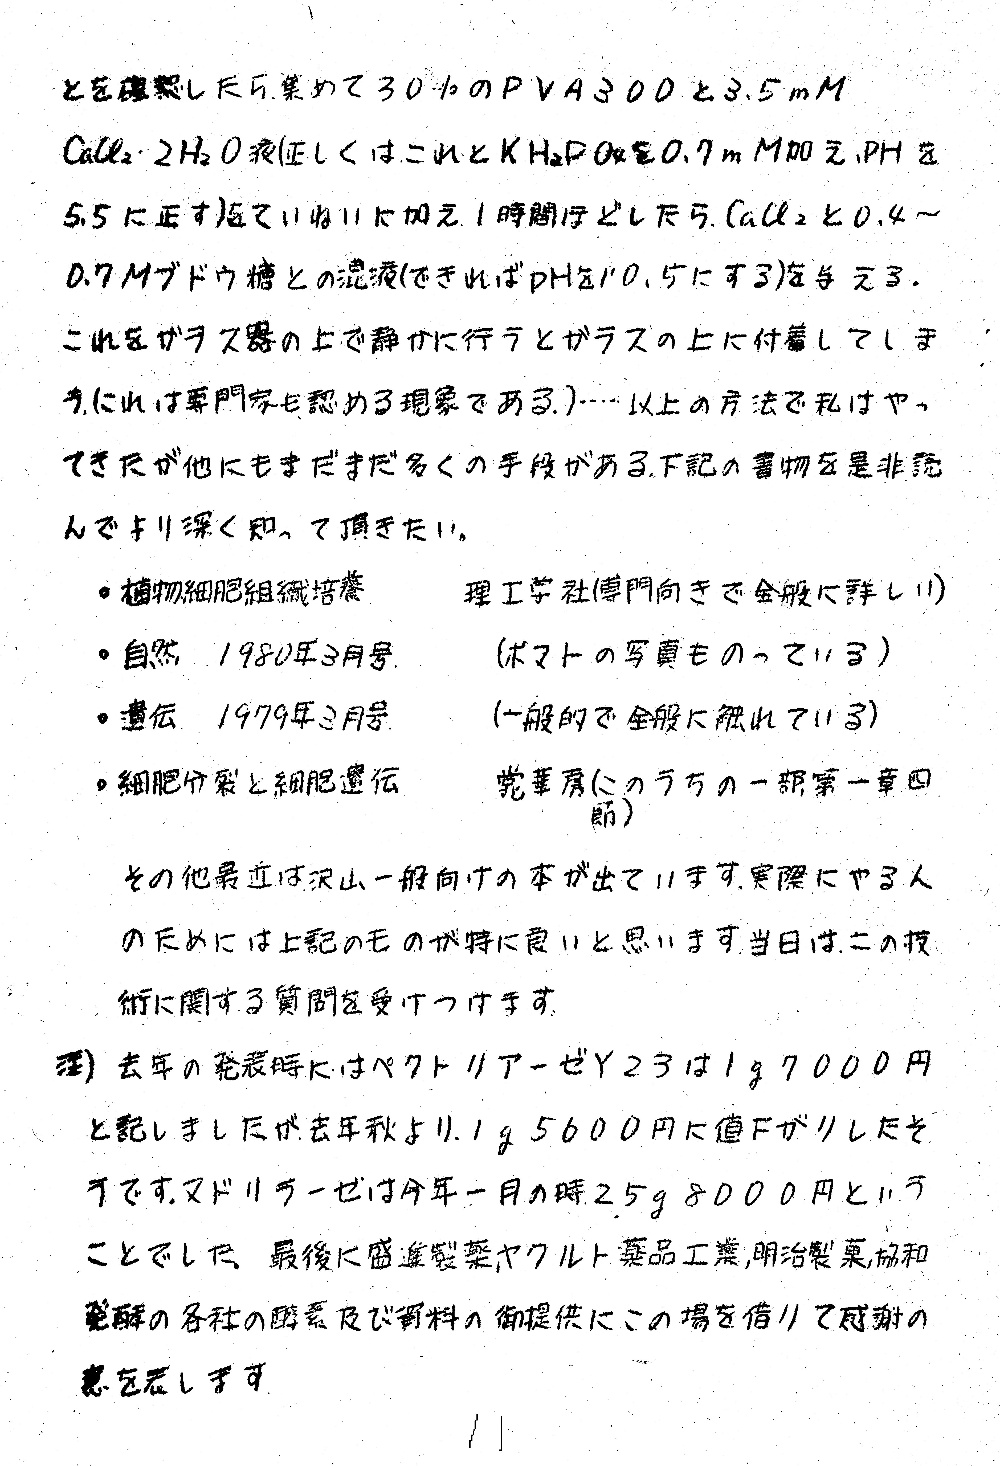 とを確認したら.集めて30%のPVA300と3.5mM
CaCl₂・2H₂O液(正しくはこれとKH₂PO₄を0.7mM加え、PHを
5.5に正す)をていねいに加え1時間ほどしたら.CaCl₂と0.4〜
0.7Mブドウ糖との混液(できればpHを10.5にする)を与える.
これをガラス器の上で静かに行うとガラスの上に付着してしま
う.(これは専門家も認める現象である.)……以上の方法で私はやっ
てきたが他にもまだまだ多くの手段がある.下記の書物を是非読
んでより深く知って頂きたい。
・植物細胞組織培養 理工学社(専門向きで全般に詳しい)
・自然 1980年3月号 (ポマトの写真ものっている)
・遺伝 1979年3月号 (一般的で全般に触れている)
・細胞分裂と細胞遺伝 裳華房(このうちの一部.第一章四
節)
その他最近は沢山一般向けの本が出ています.実際にやる人
のためには上記のものが特に良いと思います.当日は.この技
術に関する質問を受けつけます.
注) 去年の発表時にはペクトリアーゼY23は1g7000円
と記しましたが.去年秋より.1g5600円に値下がりしたそ
うです.マドリラーゼは今年一月の時25g8000円という
ことでした、最後に盛進製薬,ヤクルト薬品工業,明治製菓,協和
発酵の各社の酵素及び資料の御提供にこの場を借りて感謝の
意を表します
11